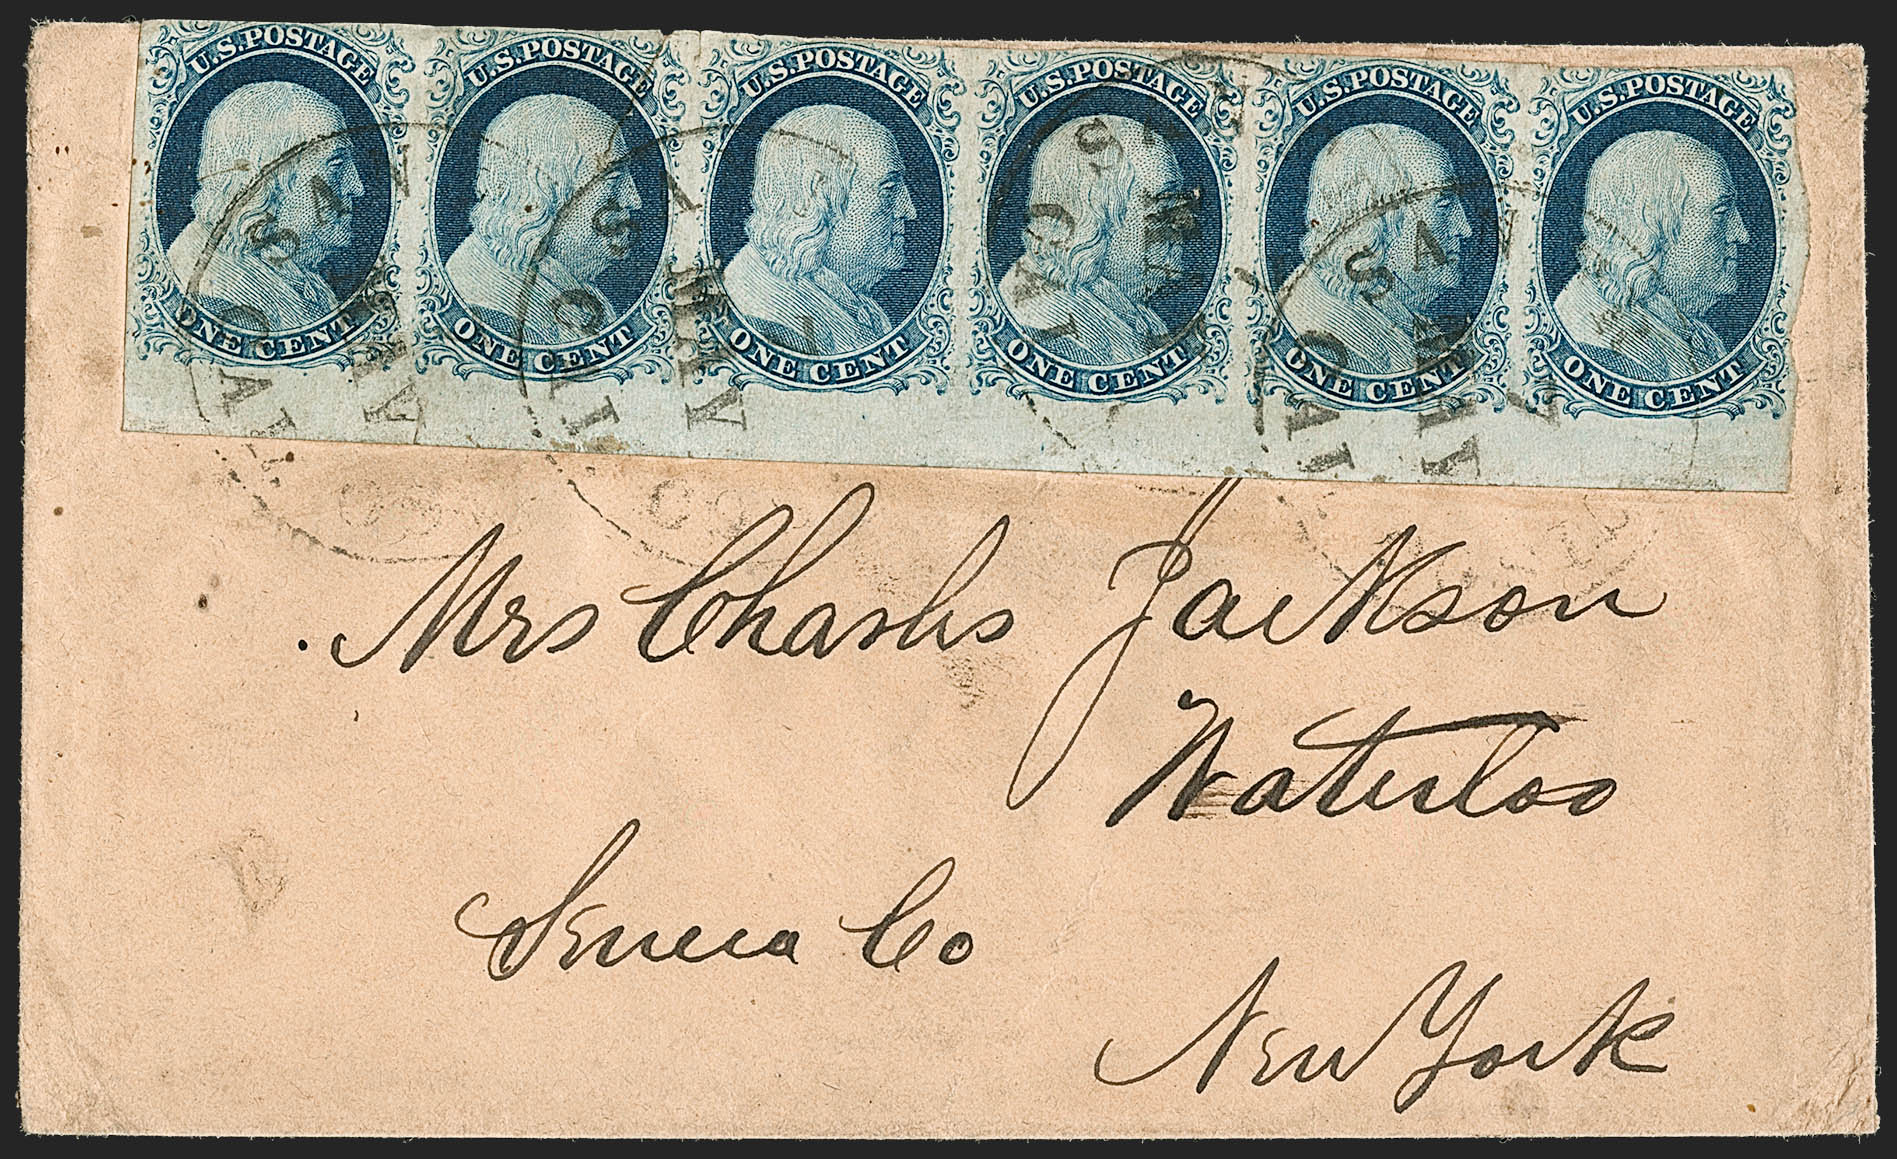 U.S.POSTAGE U.S.POSTAGE U.S.POSTAGE U.S.POSTAGE U.S.POSTAGE U.S.POSTAGE
ONE CENT ONE CENT ONE CENT ONE CENT ONE CENT ONE CENT
SAN
MAY
CAL
7
Mrs Charles Jackson
Waterloo
Seneca Co
New York